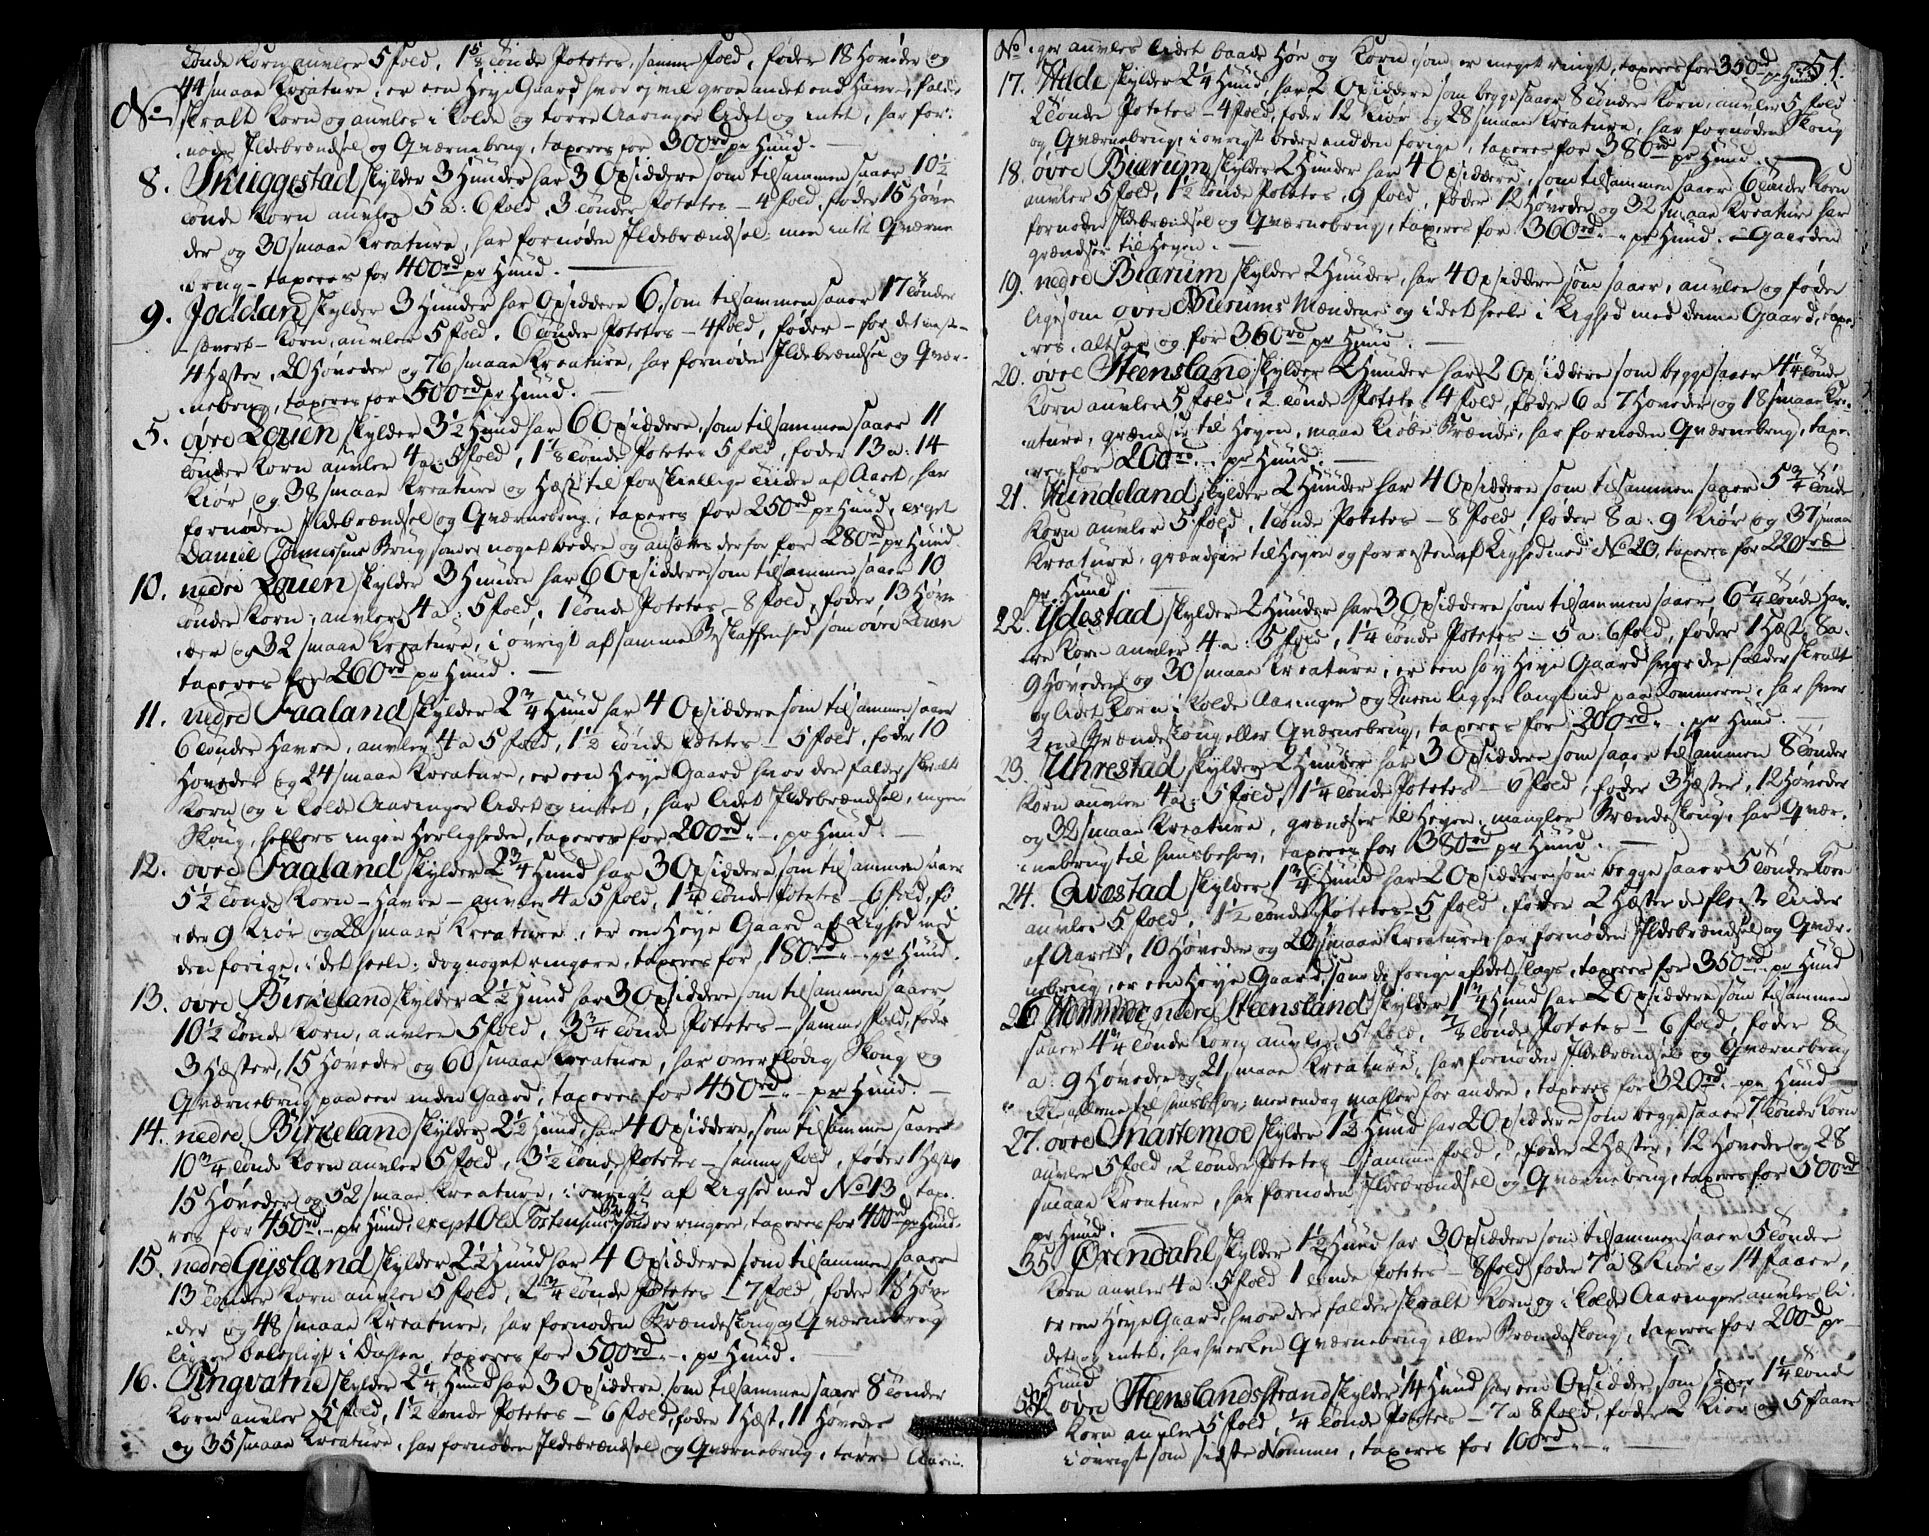 tönde Korn auvler 5 fold, 1 5/8 tönde Potetes, samme fold, föder 18 Høveder og
44 smaae Kreature, er een Høye Gaard hvor ej vil groe andet end Havre, falder
No skralt Korn og auvles i kolde og törre Aaringer lidet og intet, har for-
nøden Ildebrændsel og Qværnebrug, taxeres for 300rd pr Hund.
8. Skuggestad skylder 3 Hunder har 3 Opsiddere som tilsammen saaer 10 1/2
tönde Korn auvler 5 a: 6 fold, 3 tönder Potetes - 4 fold, föder 15 Høve
der og 30 smaae Kreature, har fornøden Ildebrændsel: men intet Qværne
brug - taxeres for 400rd pr Hund.
9. Joddan skylder 3 Hunder har Opsiddere 6, som tilsammen saaer 17 tönder
Korn, auvler 5 fold, 6 tönder Potetes - 4 fold, föder - for det meste -
4 Hæster, 20 Høveder og 76 smaae Kreature, har fornøden Ildebrændsel og Qvær-
nebrug, taxeres for 500rd pr Hund.
5. övre Louen skylder 3 1/2 Hund har 6 Opsiddere, som tilsammen saaer 11
tönder Korn auvler 4 a: 5 fold, 1 1/8 tönde Potetes 5 fold, föder 13 a: 14
Kiör og 38 smaae Kreature og Hæst til forskiellige tiider af Aaret, har
fornøden Ildebrændsel og Qværnebrug, taxeres for 250rd pr Hund, exsept
Daniel Tönnessens Brug som er noget bedre og ansættes derfor for 280rd pr Hund
10. nedre Louen skylder 3 Hunder har 6 Opsiddere, som tilsammen saaer 10
tönder Korn, auvler 4 a: 5 fold, 1 tönde Potetes - 8 fold, föder 13 Høve
der og 32 smaae Kreature, i övrigt af samme Beskaffenhed som övre Louen
taxeres for 260rd pr Hund.
11. nedre Faaland skylder 2 3/4 Hund har 4 Opsiddere som tilsammen saaer
6 tönder Havre, auvler 4 a 5 fold, 1 1/2 tönde Potetes - 5 fold, föder 10
Høveder og 24 smaae Kreature, er een Høye Gaard hvor der falder skralt
Korn og i kolde Aaringer lidet og intet, har lidet Ildebrændsel, ingen
Skoug, hellers ingen Herligheder, taxeres for 200rd pr Hund.
12. övre Faaland skylder 2 3/4 Hund har 3 Opsiddere som tilsammen saaer
5 1/2 tönde Korn - Havre - auvler 4 a 5 fold, 1 1/4 tönde Potetes - 6 fold, fö-
der 9 Kiör og 28 smaae Kreature, er een Høye Gaard af Lighed med
den forige, i det heele: dog noget ringere, taxeres for 180rd pr Hund.
13. övre Birkeland skylder 2 1/2 Hund har 3 Opsiddere som tilsammen saaer
10 1/2 tönde Korn, auvler 5 fold, 3 3/4 tönde Potetes - samme fold, föder
3 Hæster, 15 Høveder og 60 smaae Kreature, har overflødig Skoug og
Qværnebrug paa een anden Gaard, taxeres for 450rd pr Hund.
14. nedre Birkeland skylder 2 1/2 Hund, har 4 Opsiddere, som tilsammen saaer
10 3/4 tönde Korn auvler 5 fold, 3 1/2 tönde Potetes - samme fold, föder 1 Hæst
15 Høveder og 52 smaae Kreature, i övrigt af Lighed med No 13, taxe-
res for 450rd pr Hund, exsept Ole Tostensens Brug som er ringere, taxeres for 400rd pr Hund.
15. nedre Gysland skylder 2 1/2 Hund har 4 Opsiddere som tilsammen saaer
13 tönder Korn auvler 5 fold, 2 3/4 tönde Potetes - 7 fold, föder 18 Høve
der og 48 smaae Kreature, har fornøden Brændeskoug og Qværnebrug
ligger beleyligt i Dahlen, taxeres for 500rd pr Hund.
16. Tingvatne skylder 2 1/4 Hund har 3 Opsiddere, som tilsammen saaer 8 tönder
Korn auvler 5 fold, 1 1/2 tönde Potetes - 6 fold, föder 1 Hæst, 11 Høveder
og 35 smaae Kreature, har fornøden Ildebrændsel og Qværnebrug, tørre Aarin-
51.
No ger auvles lidet baade Høe og Korn, som er meget ringt, taxeres for 350rd pr Hund
17. Adde skylder 2 1/4 Hund, har 2 Opsiddere som begge saaer 8 tönder Korn, auvler 5 fold
2 tönde Potetes - 4 fold, föder 12 Kiör og 28 smaae Kreature, har fornøden Skoug
og Qværnebrug, i övrigt bedre end den forige, taxeres for 380rd pr Hund.
18. övre Biærum skylder 2 Hunder har 4 Opsiddere, som tilsammen saaer 6 tönder Korn
auvler 5 fold, 1 1/2 tönde Potetes, 9 fold, föder 12 Høveder og 32 smaae Kreature har
fornøden Ildebrændsel og Qværnebrug, taxeres for 360rd pr Hund. - Gaarden
grændser til Heyen.
19. nedre Biærum skylder 2 Hunder, har 4 Opsiddere som saaer, auvler og föder
ligesom övre Biærums Mændene og i det heele i Lighed med denne Gaard, taxe-
res, altsaa og for 360rd pr Hund.
20. övre Steensland skylder 2 Hunder har 2 Opsiddere som begge saaer 4 1/4 tönde
Korn auvler 5 fold, 1/2 tönde Potetes 4 fold, föder 6 a 7 Høveder og 18 smaae Kre-
ature, grændser til Heyen, maae kiöbe Brænde, har fornøden Qværnebrug, taxe-
res for 200rd pr Hund.
21. Hundeland skylder 2 Hunder har 4 Opsiddere som tilsammen saaer 5 3/4 tönde
Korn auvler 5 fold, 1 tönde Potetes - 8 fold, föder 8 a: 9 Kiör og 37 smaae
Kreature, grændser til Heyen og forresten af Lighed med No 20, taxeres for 220rd
pr Hund
22. Ydestad skylder 2 Hunder har 3 Opsiddere som tilsammen saaer 6 1/4 tönde Hav-
re Korn auvler 4 a: 5 fold, 1 1/4 tönde Potetes - 5 a: 6 fold, föder 1 Hæst, 8 a:
9 Høveder og 30 smaae Kreature, er een höy Høye Gaard hvor der falder skralt
og lidet Korn i kolde Aaringer og Sneen ligger langt ud paa Sommeren, har hver
ken Brændeskoug eller Qværnebrug, taxeres for 200rd pr Hund.
23. Uhrestad skylder 2 Hunder har 3 Opsiddere som saaer tilsammen 8 tönder
Korn auvler 4 a: 5 fold, 1 1/4 tönde Potetes - 6 fold, föder 3 Hæster, 12 Høveder
og 32 smaae Kreature, grændser til Heyen, mangler Brændeskoug, har Qvær-
nebrug til huusbehov, taxeres for 380rd pr Hund.
24. Qvæstad skylder 1 3/4 Hund har 2 Opsiddere som begge saaer 5 tönder Korn
auvler 5 fold, 1 1/2 tönde Potetes - 5 fold, föder 2 Hæster de fleste tiider
af Aaret, 10 Høveder og 20 smaae Kreature, har fornøden Ildebrændsel og Qvær-
nebrug, er een Høye Gaard, som de forige af det slags, taxeres for 350rd pr Hund
26 nedre Steensland skylder 1 3/4 Hund har 2 Opsiddere som tilsammen
saaer 4 1/4 tönde Korn auvler 5 fold, 7/8 tönde Potetes - 6 fold, föder 8
a: 9 Høveder og 21 smaae Kreature, har fornøden Ildebrændsel og Qværnebrug
ikke allene til huusbehov, men endog mahler for andre, taxeres for 320rd pr Hund
27. övre Snartemoe skylder 1 1/2 Hund har 2 Opsiddere som begge saaer 7 tönder Korn
auvler 5 fold, 2 tönder Potetes - samme fold, föder 2 Hæster, 12 Høveder og 28
smaae Kreature, har fornøden Ildebrændsel og Qværnebrug, taxeres for 500rd
pr Hund.
35 Ørendahl skylder 1 1/2 Hund har 3 Opsiddere som tilsammen saaer 5 tönder
Korn auvler 4 a: 5 fold 1 tönde Potetes - 8 fold, föder 7 a 8 Kiör og 14 Faaer,
er een Høye Gaard, hvor der falder skralt Korn og i kolde Aaringer auvles li-
det og intet, har hverken Qværnebrug eller Brændeskoug, taxeres for 200rd pr
Hund
övre Steenslandsstrand skylder 1/4 Hund har een Opsidder som saaer 1 1/4 tönde
Korn auvler 5 fold, 1/4 tönde Potetes - 7 a 8 fold, föder 2 Kiör og 5 Faaer
i övrigt som sidste Nommer, taxeres for 100rd